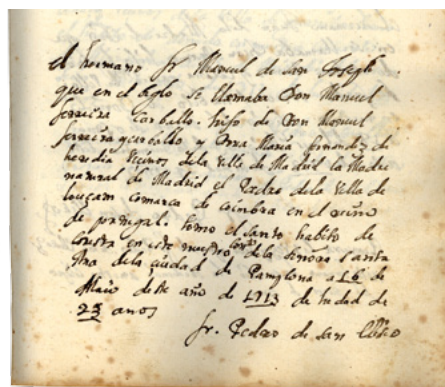 el hermano fr Manuel de san Joseph
que en el siglo se llamaba Don Manuel
ferreira Carballo. hijo de Don Manuel
ferreira y carballo y Dona Maria fernandez de
heredia Vecinos de la Villa de Madrid la Madre
natural de Madrid el Padre de la Villa de
louçam comarca de coimbra en el reino
de portugal. tomo el santo habito de
en este nuestro conto de la senora santa
Ana de la ciudad de Pamplona a 16 de
Maio deste año de 1713 de hedad de
23 anos
fr. Pedro de san